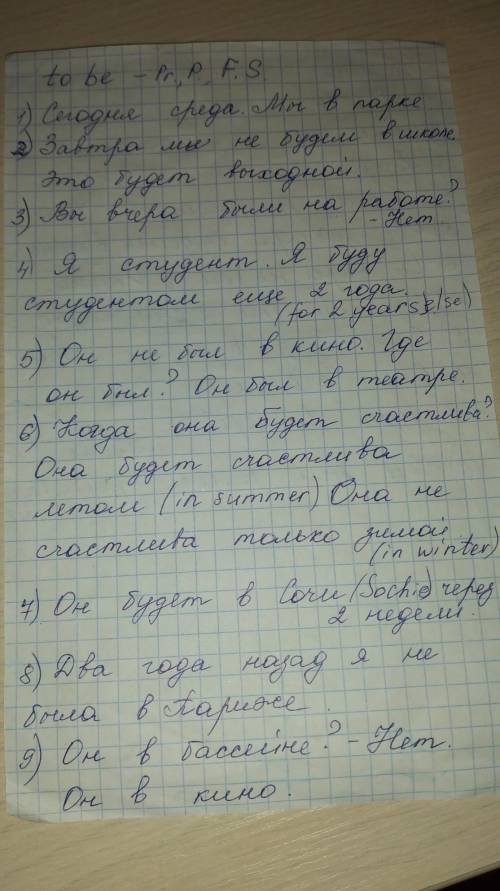 to be - Pr, P, F. S.
1) Сегодня среда. Мы в парке
2) Завтра мы не будем в школе.
Это будет выходной.
3) Вы вчера были на работе?
- Нет
4) Я студент. Я буду
студентом еще 2 года.
(for 2 years else)
5) Он не был в кино. Где
он был? Он был в театре.
6) Когда она будет счастлива?
Она будет счастлива
летом (in summer) Она не
счастлива только зимой
(in winter)
7) Он будет в Сочи (Sochi) через
2 недели.
8) Два года назад я не
была в Париже.
9) Он в бассейне? - Нет.
Он в кино.